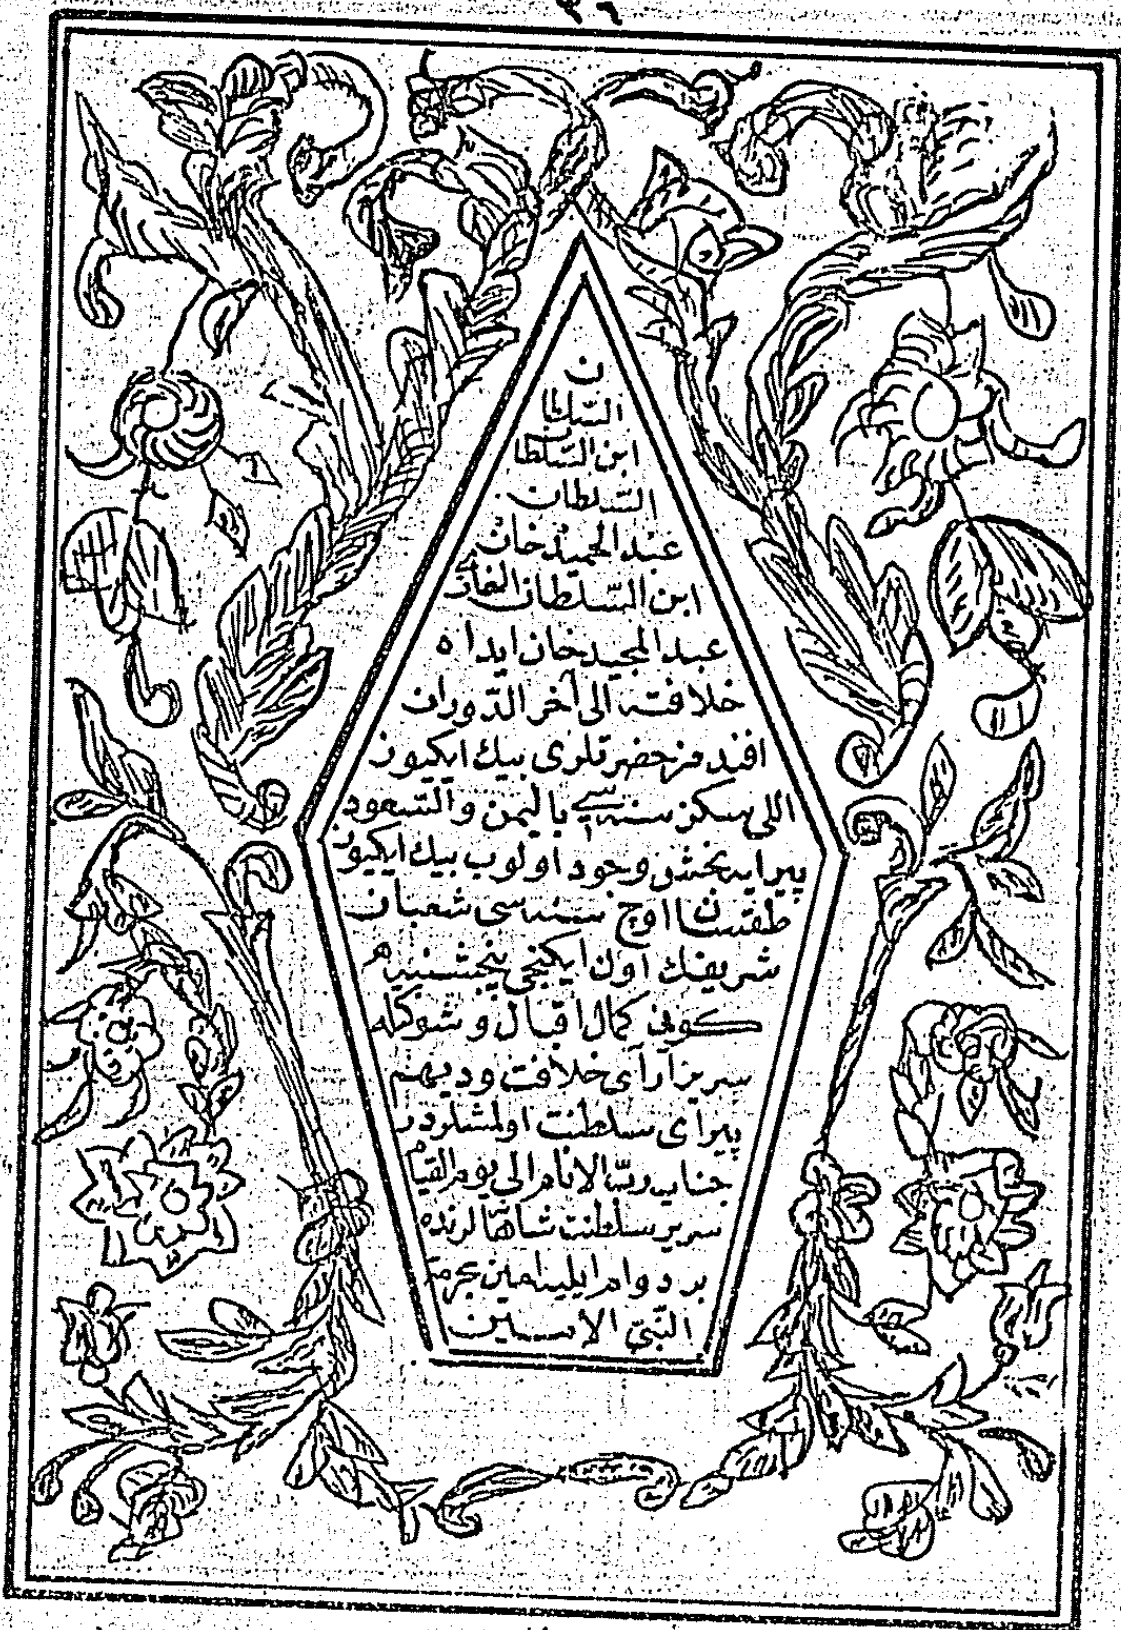 ٢٦
السلطان
ابن السلطان
السلطان
عبد الحميد خان
ابن السلطان الغازى
عبد المجيد خان ايداه
خلافته الى آخر الدوران
افندمز حضرتلرى بيك ايكيوز
اللى سكز سنه سى باليمن والسعود
پيرايه بخش وجود اولوب بيك ايكيوز
طقسان اوچ سنه سى شعبان
شريفك اون ايكنجى پنجشنبه
كونى كمال اقبال و شوكتله
سرير آراى خلافت و ديهيم
پيراى سلطنت اولمشلردر
جناب رب الانام الى يوم القيام
سرير سلطنت شاهانه لرنده
بر دوام ايليه امين بحرمة
النبى الامين